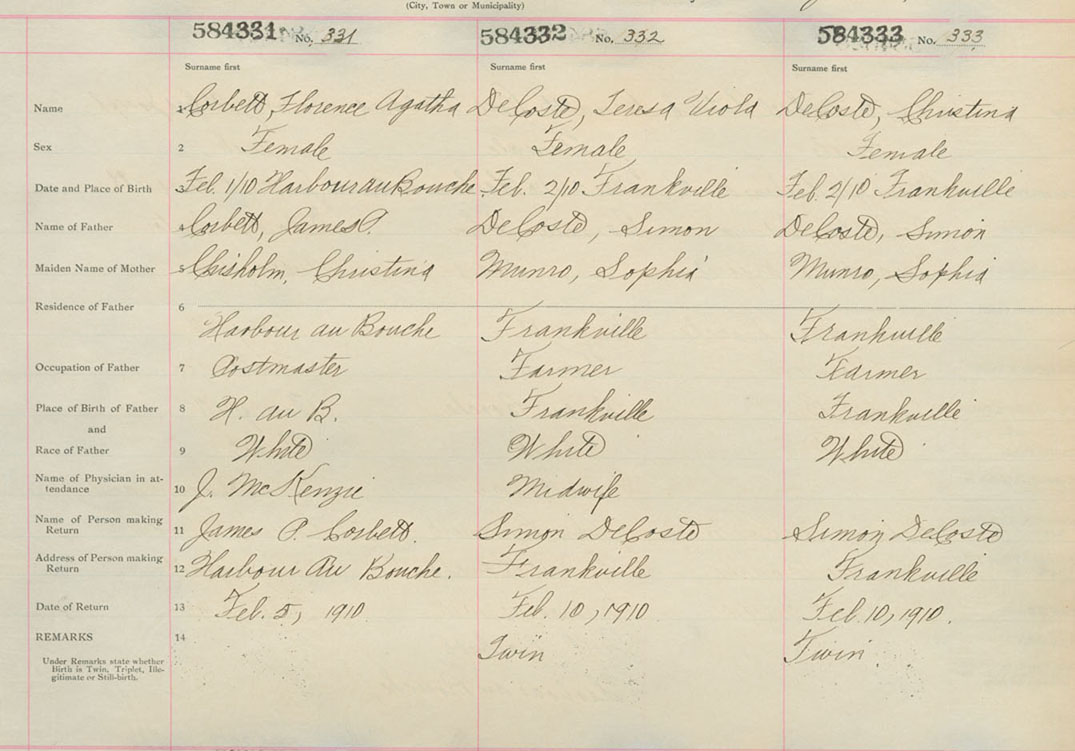 (City, Town or Municipality)
584331 No. 331 584332 No. 332 584333 No. 333
Surname first Surname first Surname first
Name 1 Corbett, Florence Agatha DeCoste, Teresa Viola DeCoste, Christina
Sex 2 Female Female Female
Date and Place of Birth 3 Feb. 1/10 Harbour au Bouche Feb. 2/10 Frankville Feb. 2/10 Frankville
Name of Father 4 Corbett, James P. DeCoste, Simon DeCoste, Simon
Maiden Name of Mother 5 Chisholm, Christina Munro, Sophia Munro, Sophia
Residence of Father 6
Harbour au Bouche Frankville Frankville
Occupation of Father 7 Postmaster Farmer Farmer
Place of Birth of Father 8 H. au B. Frankville Frankville
and
Race of Father 9 White White White
Name of Physician in at-
tendance 10 J. McKenzie Midwife
Name of Person making
Return 11 James P. Corbett. Simon DeCoste Simon DeCoste
Address of Person making
Return 12 Harbour Au Bouche. Frankville Frankville
Date of Return 13 Feb. 5, 1910 Feb. 10, 1910 Feb. 10, 1910.
REMARKS 14 Twin Twin
Under Remarks state whether
Birth is Twin, Triplet, Ille-
gitimate or Still-birth.